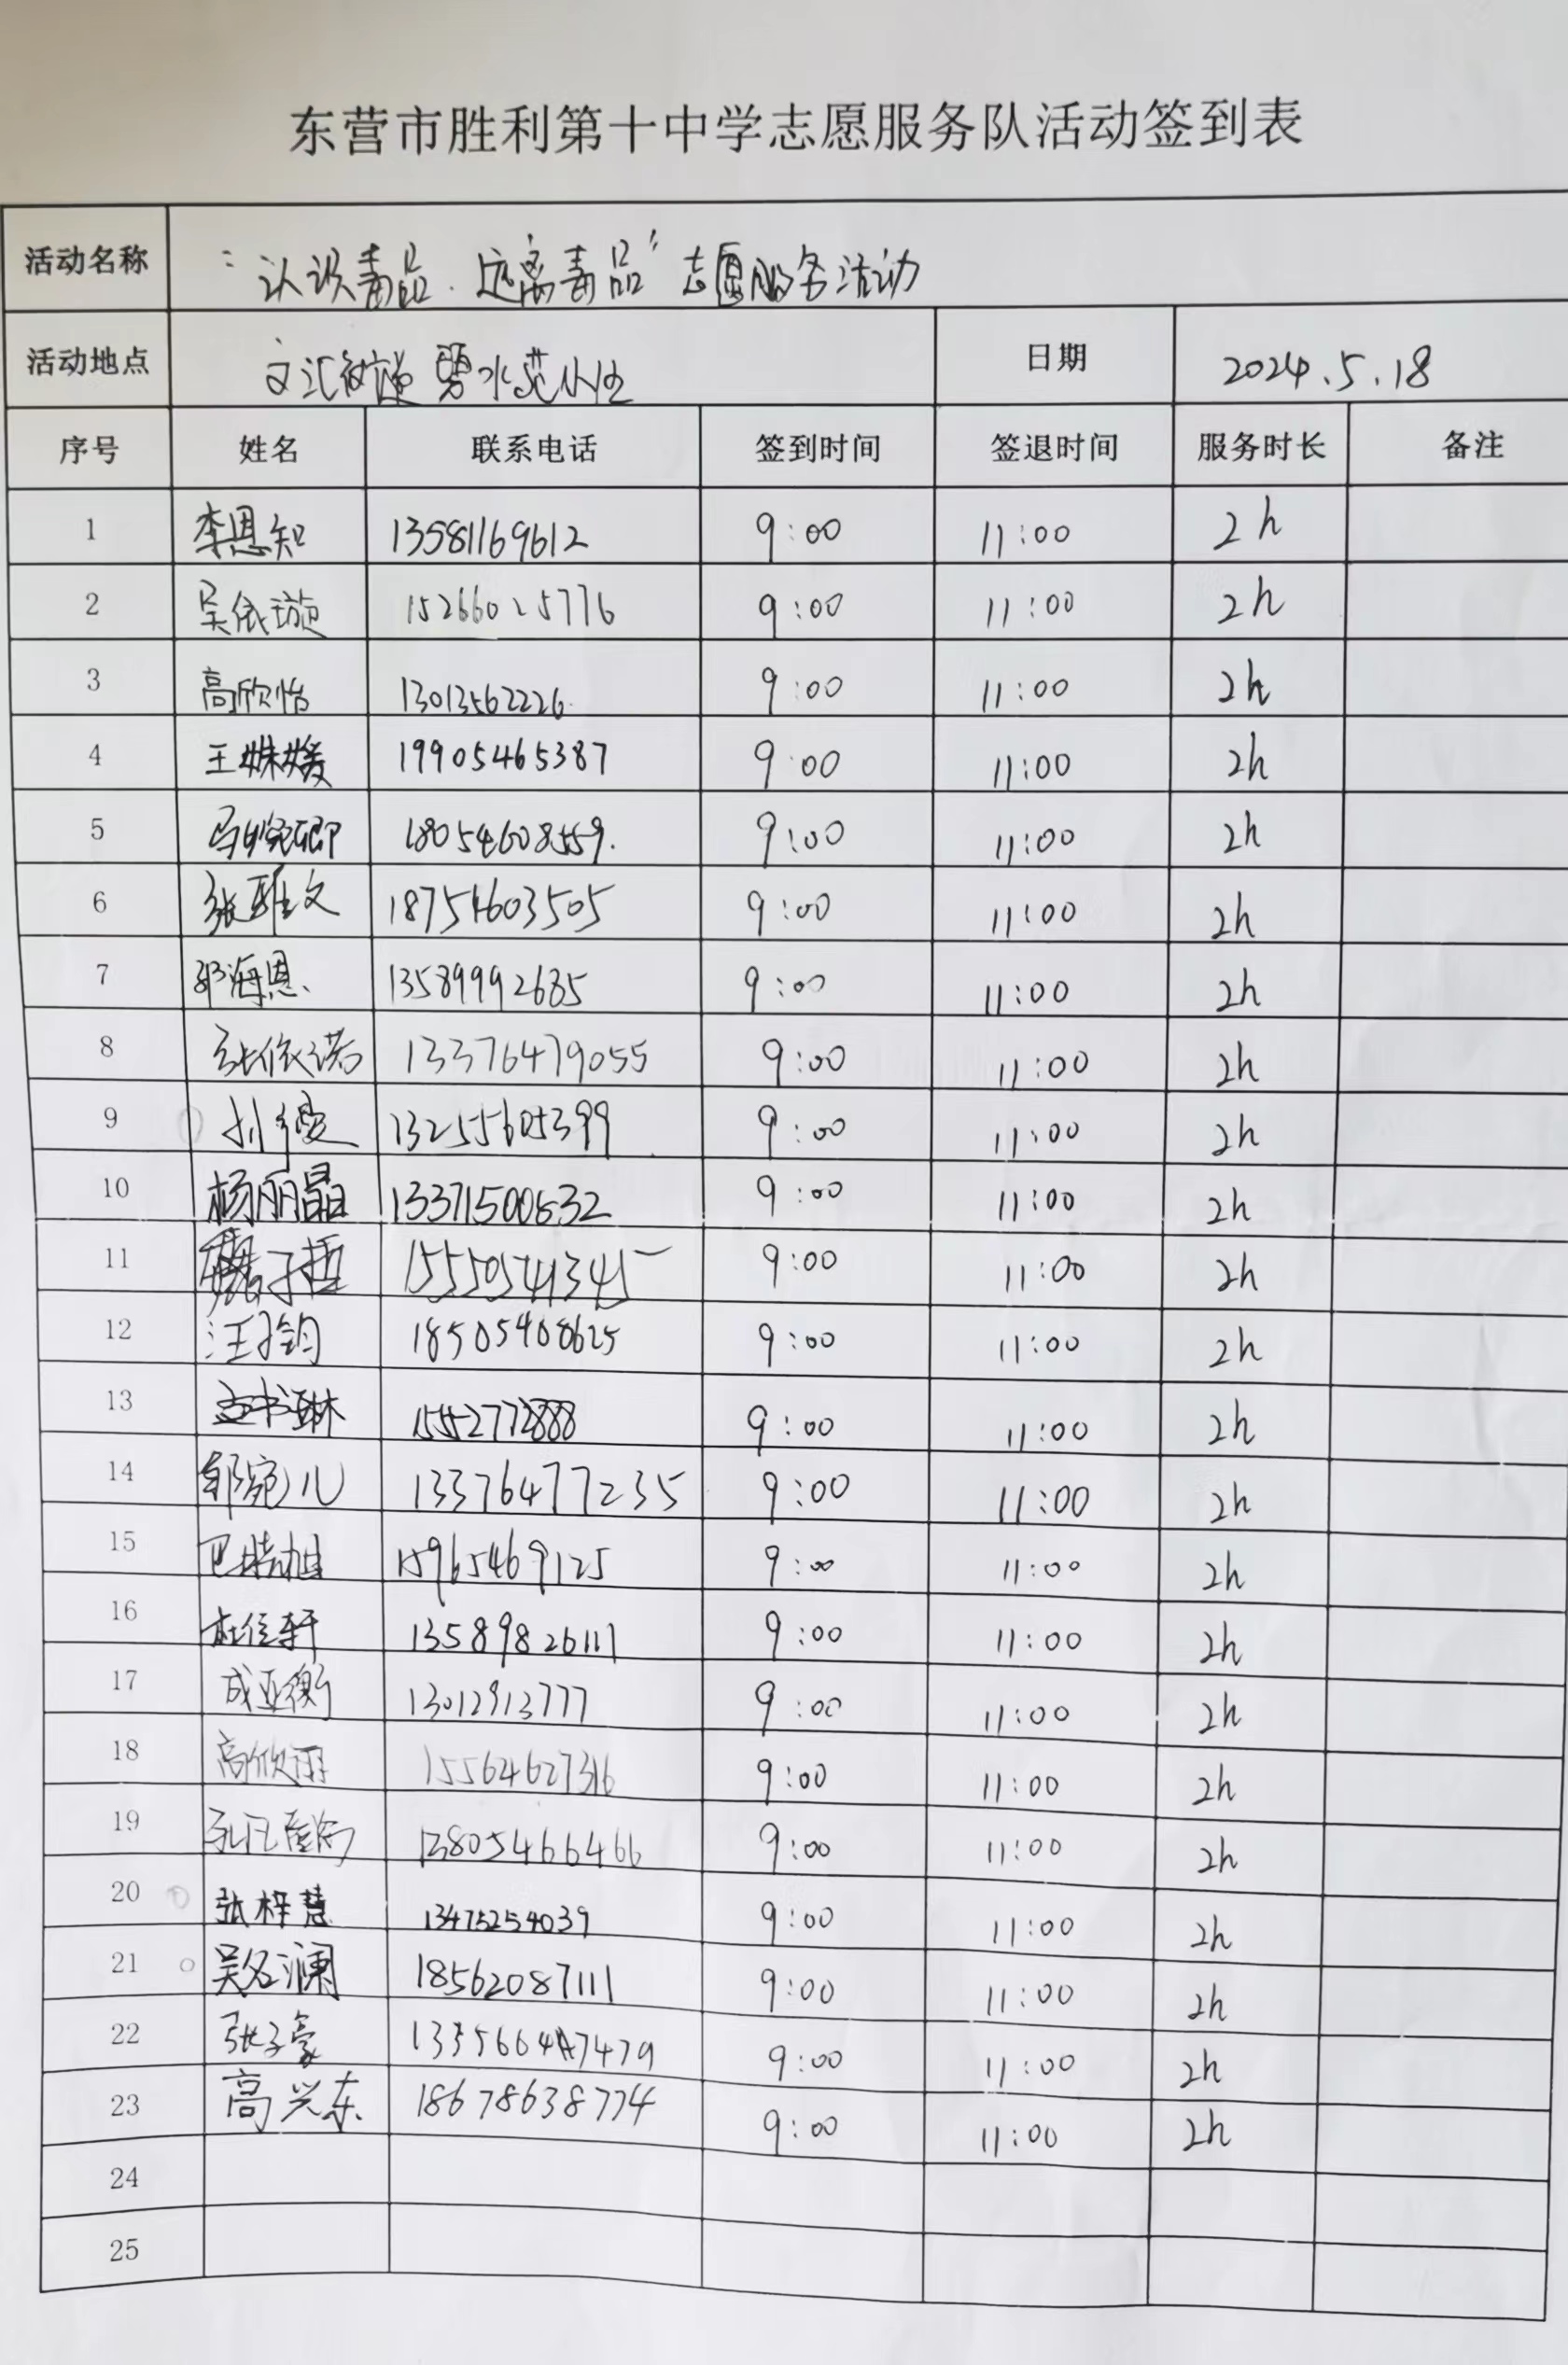 东营市胜利第十中学志愿服务队活动签到表
活动名称 “认识毒品.远离毒品”志愿服务活动
活动地点 文汇街道碧水苑小区 日期 2024.5.18
序号 姓名 联系电话 签到时间 签退时间 服务时长 备注
1 李恩知 13581169612 9:00 11:00 2h
2 吴依璇 15266025776 9:00 11:00 2h
3 高欣怡 13013562226 9:00 11:00 2h
4 王姝媛 19905465387 9:00 11:00 2h
5 18054608559. 9:00 11:00 2h
6 张雅文 18754603505 9:00 11:00 2h
7 郭海恩 13589992685 9:00 11:00 2h
8 张依诺 13376479055 9:00 11:00 2h
9 13255605399 9:00 11:00 2h
10 杨丽晶 9:00 11:00 2h
11 子哲 15550541345 9:00 11:00 2h
12 汪子钧 18505408625 9:00 11:00 2h
13 孟书琳 15552772888 9:00 11:00 2h
14 郭宛儿 13376477235 9:00 11:00 2h
15 15965469125 9:00 11:00 2h
16 杜佳轩 13589826111 9:00 11:00 2h
17 成亚衡 13012913777 9:00 11:00 2h
18 高欣雨 15564627316 9:00 11:00 2h
19 13805466466 9:00 11:00 2h
20 张梓慧 13475254039 9:00 11:00 2h
21 吴名澜 18562087111 9:00 11:00 2h
22 张子豪 9:00 11:00 2h
23 高兴东 18678638774 9:00 11:00 2h
24
25